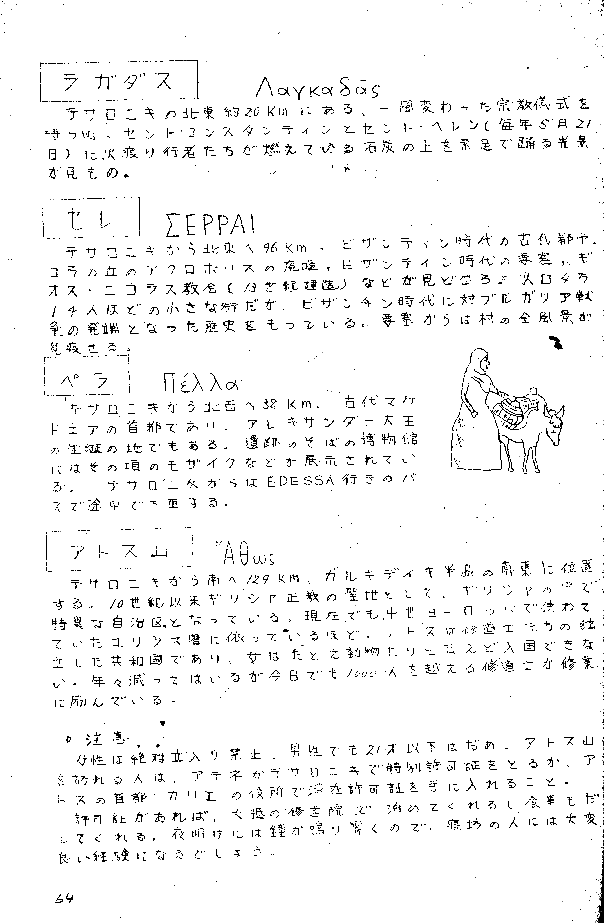 ラガダス Λαγκαδάς
テサロニキの北東約20Kmにある。一風変わった宗教儀式を
持つ町。セント・コンスタンティンとセント・ヘレン(毎年5月21
日)に火渡り行者たちが燃えている石炭の上を素足で踊る光景
が見もの。
セレ ΣΕΡΡΑΙ
テサロニキから北東へ96Km、ビザンティン時代の古代都市。
コラの丘のアクロポリスの廃墟、ビザンティン時代の要塞、ギ
オス・ニコラス教会(13世紀建造)などが見どころ。人口4万
1千人ほどの小さな街だが、ビザンチン時代に対ブルガリア戦
争の発端となった歴史をもっている。要塞からは村の全風景が
見渡せる。
ペラ Πέλλα
テサロニキから北西へ38Km、古代マケ
ドニアの首都であり、アレキサンダー大王
の生誕の地でもある。遺跡のそばの博物館
にはその頃のモザイクなどが展示されてい
る。テサロニキからはEDESSA行きのバ
スで途中で下車する。
アトス山 Άθως
テサロニキから南へ129Km、カルキディキ半島の南東に位置
する。10世紀以来ギリシア正教の聖地として、ギリシアの中で
特異な自治区となっている。現在でも中世ヨーロッパで使われ
ていたユリウス暦に依っているほど。アトスは修道士たちの独
立した共和国であり、女はたとえ動物たりといえど入国できな
い。年々減ってはいるが今日でも1000人を越える修道士が修業
に励んでいる。
○注意
女性は絶対立入り禁止。男性でも21才以下はだめ。アトス山
を訪れる人は、アテネかテサロニキで特別許可証をとるか、ア
トスの首都カリエの役所で滞在許可証を手に入れること。
許可証があれば、大抵の修道院で泊めてくれるし食事もだ
してくれる。夜明けには鐘が鳴り響くので、寝坊の人には大変
良い経験になるでしょう。
64